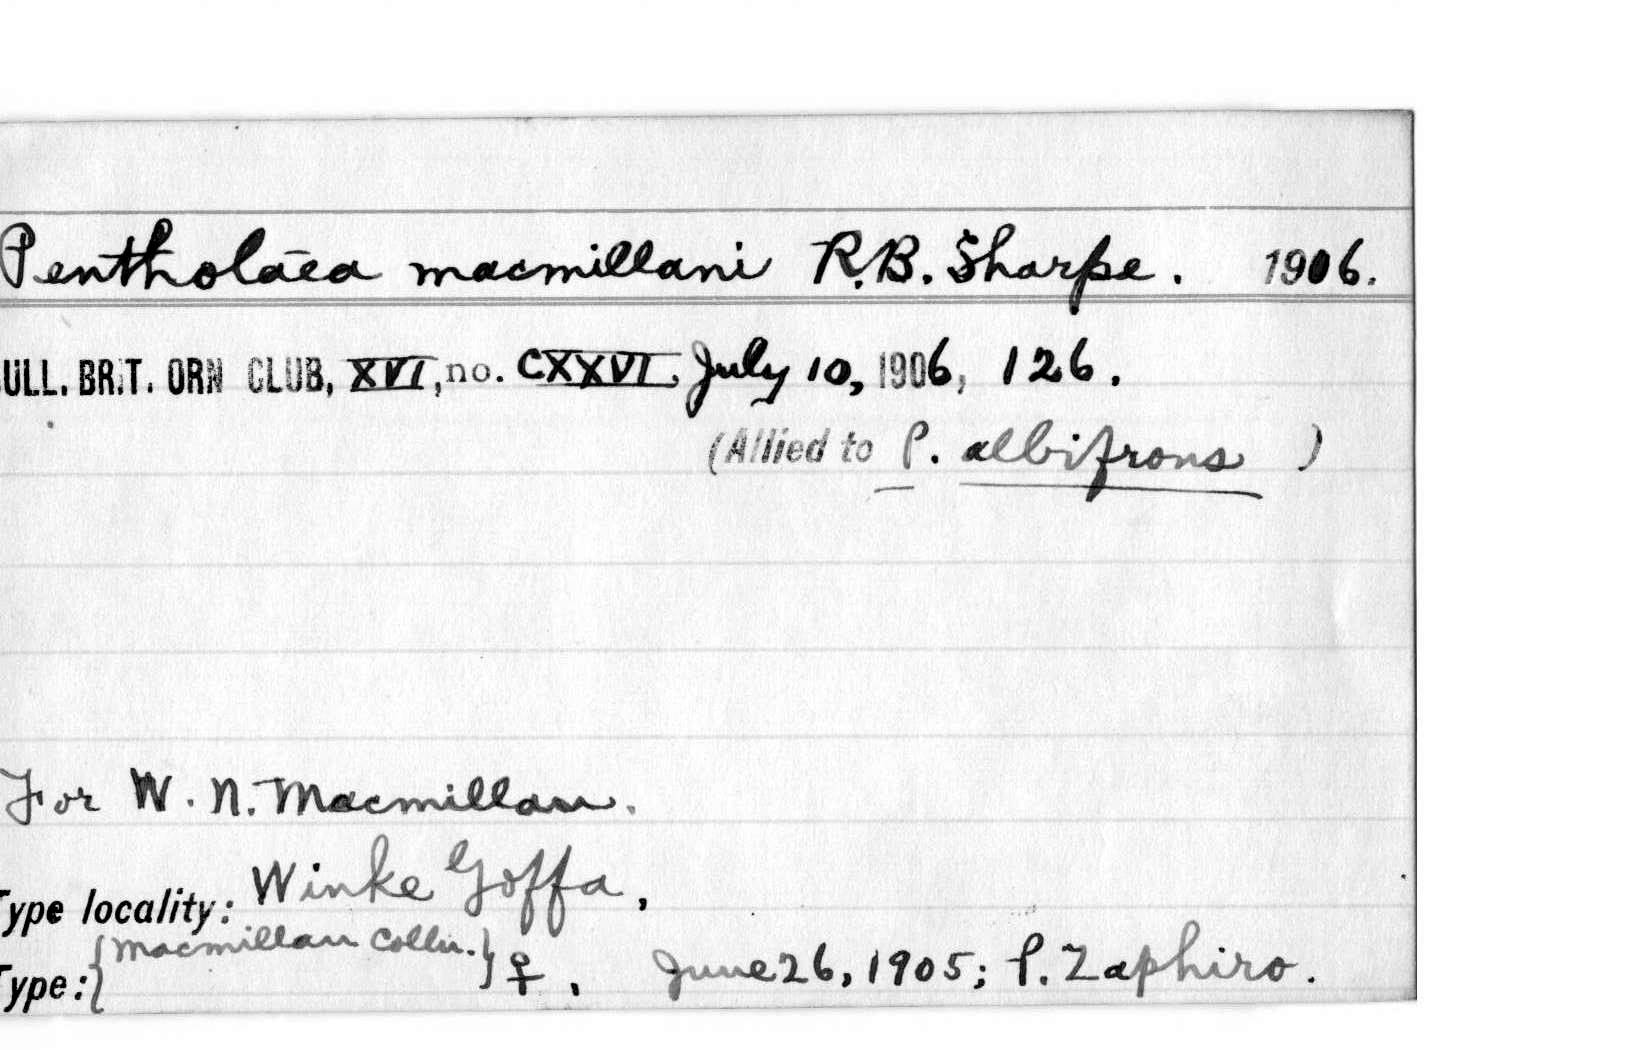 Pentholaea macmillani R.B. Sharpe. 1906.
ULL. BRIT. ORN CLUB, XVI, no. CXXVI. July 10, 1906, 126.
(Allied to P. albifrons )
For W. N. Macmillan.
Type locality: Winke Goffa,
Type: {Macmillan Colln.} ♀, June 26, 1905; P. Zaphiro.